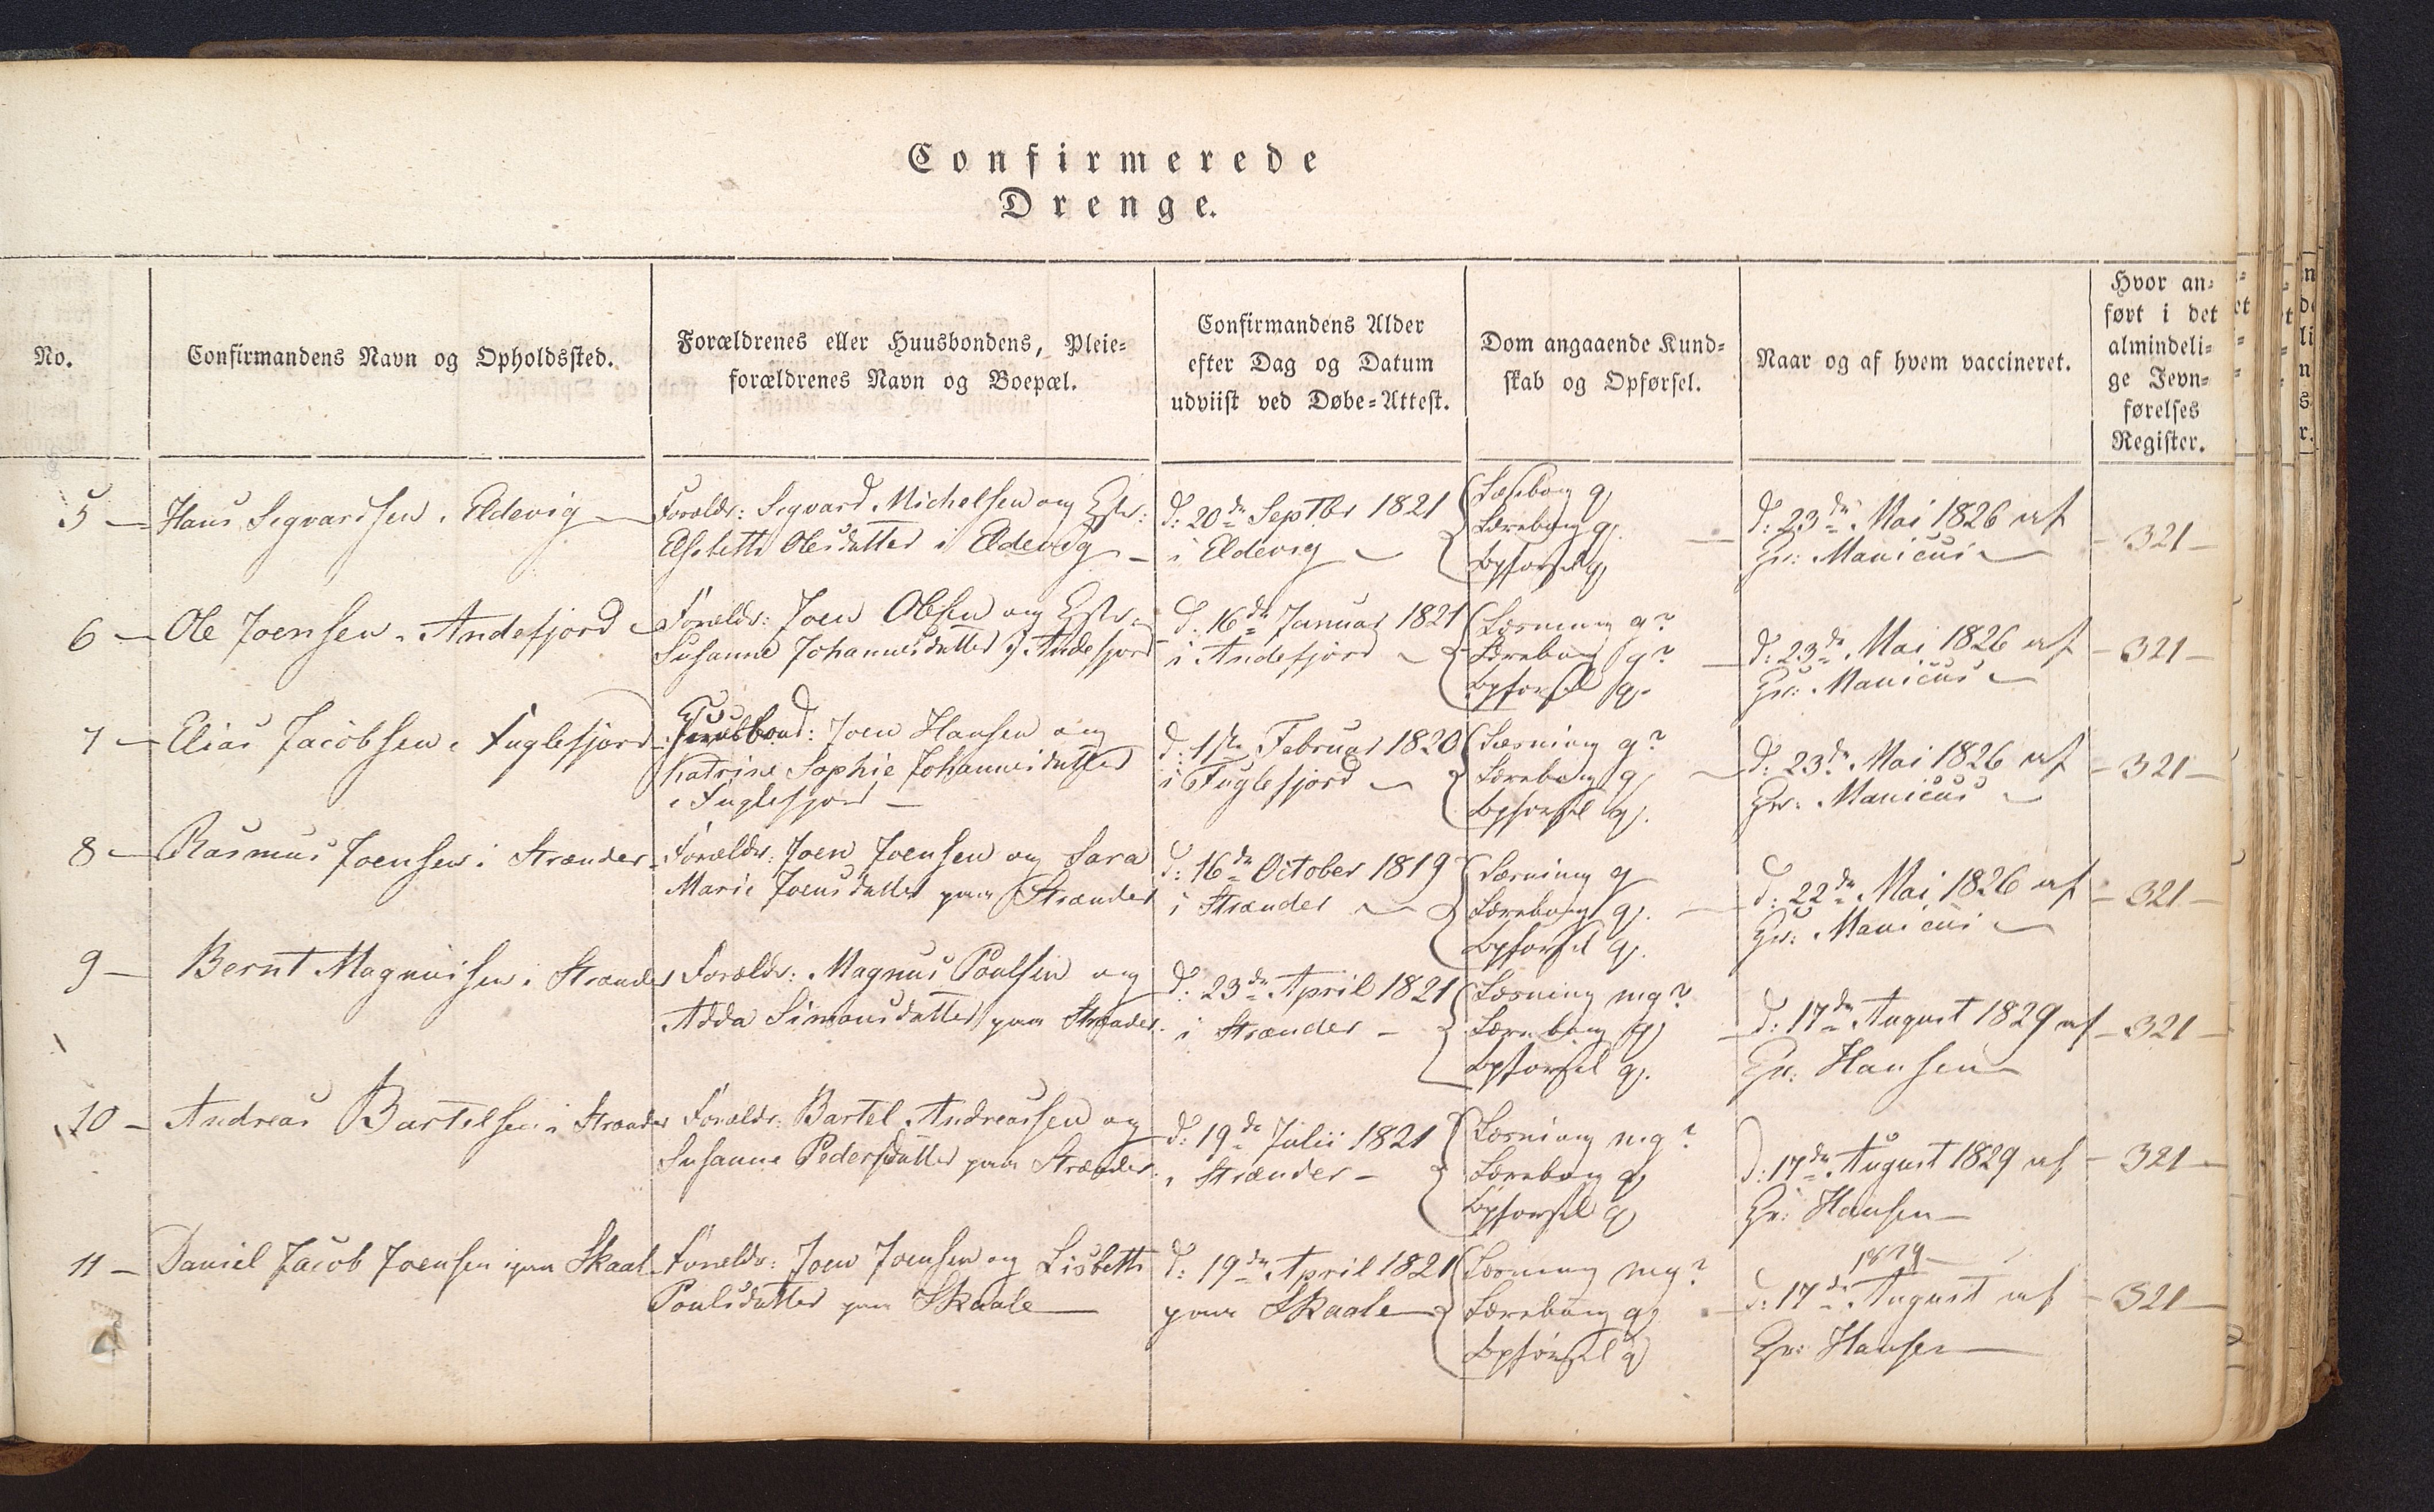 Confirmerede
Drenge.
No.
Confirmandens Navn og Opholdssted.
Forældrenes eller Huusbondens, Pleie-
forældrenes Navn og Boepæl.
Confirmandens Alder
efter Dag og Datum
udviist ved Døbe-Attest.
Dom angaaende Kund-
skab og Opførsel.
Naar og af hvem vaccineret.
Hvor an-
ført i det
almindeli-
ge Jevn-
førelses
Register.
5 — Hans Segvardsen i Eldevig —
Forældr: Segvard Michelsen og
Elsebeth Olesdatter i Eldevig —
d: 20de Septbr 1821
i Eldevig —
Læsebog g
Lærebog g.
Opførsel g
d: 23de Mai 1826 af
Hr: Manicus —
— 321 —
6 — Ole Joensen i Andefjord —
Forældr: Joen Olesen og
Susanne Johannesdatter i Andefjord
d: 16de Januar 1821
i Andefjord —
Læsning g?
Lærebog g?
Opførsel g.
d: 23de Mai 1826 af
Hr: Manicus —
— 321 —
7 — Elias Jacobsen i Fuglefjord
Huusbond: Joen Hansen og
Katrine Sophie Johannesdatter
i Fuglefjord —
d: 1ste Februar 1820
i Fuglefjord —
Læsning g?
Lærebog g
Opførsel g.
d: 23de Mai 1826 af
Hr: Manicus —
— 321 —
8 — Rasmus Joensen i Strænder
Forældr: Joen Joensen og Sara
Marie Joensdatter paa Strænder
d: 16de October 1819
i Strænder —
Læsning g
Lærebog g.
Opførsel g.
d: 22de Mai 1826 af
Hr: Manicus —
— 321 —
9 — Bernt Magnussen i Strænder
Forældr: Magnus Poulsen og
Adda Simonsdatter paa Strænder.
d: 23de April 1821
i Strænder —
Læsning mg?
Lærebog g
Opførsel g.
d: 17de August 1829 af
Hr: Hansen —
— 321 —
10 — Andreas Bartelsen i Strænder
Forældr: Bartel Andreassen og
Susanne Pedersdatter paa Strænder.
d: 19de Julii 1821
i Strænder —
Læsning mg?
Lærebog g
Opførsel g
d: 17de August 1829 af
Hr: Hansen —
— 321 —
11 — Daniel Jacob Joensen paa Skaal
Forældr: Joen Joensen og Lisbeth
Poulsdatter paa Skaale —
d: 19de April 1821
paa Skaale —
Læsning mg?
Lærebog g
Opførsel g
1829
d: 17de August af
Hr: Hansen —
— 321 —